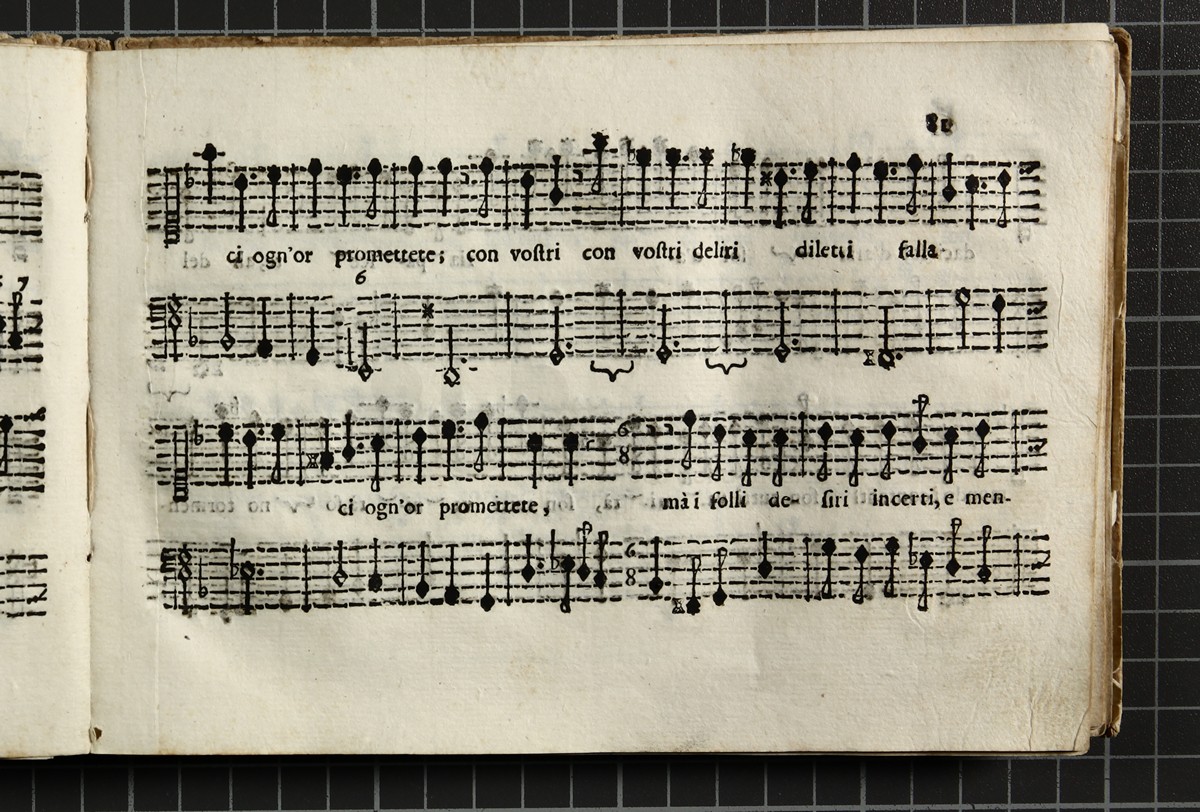 81
ci ogn'or promettete; con voſtri con voſtri deliri diletti falla-
6
7
ci ogn'or promettete, mà i folli de- ſiri incerti, e men-
6 8
6 8